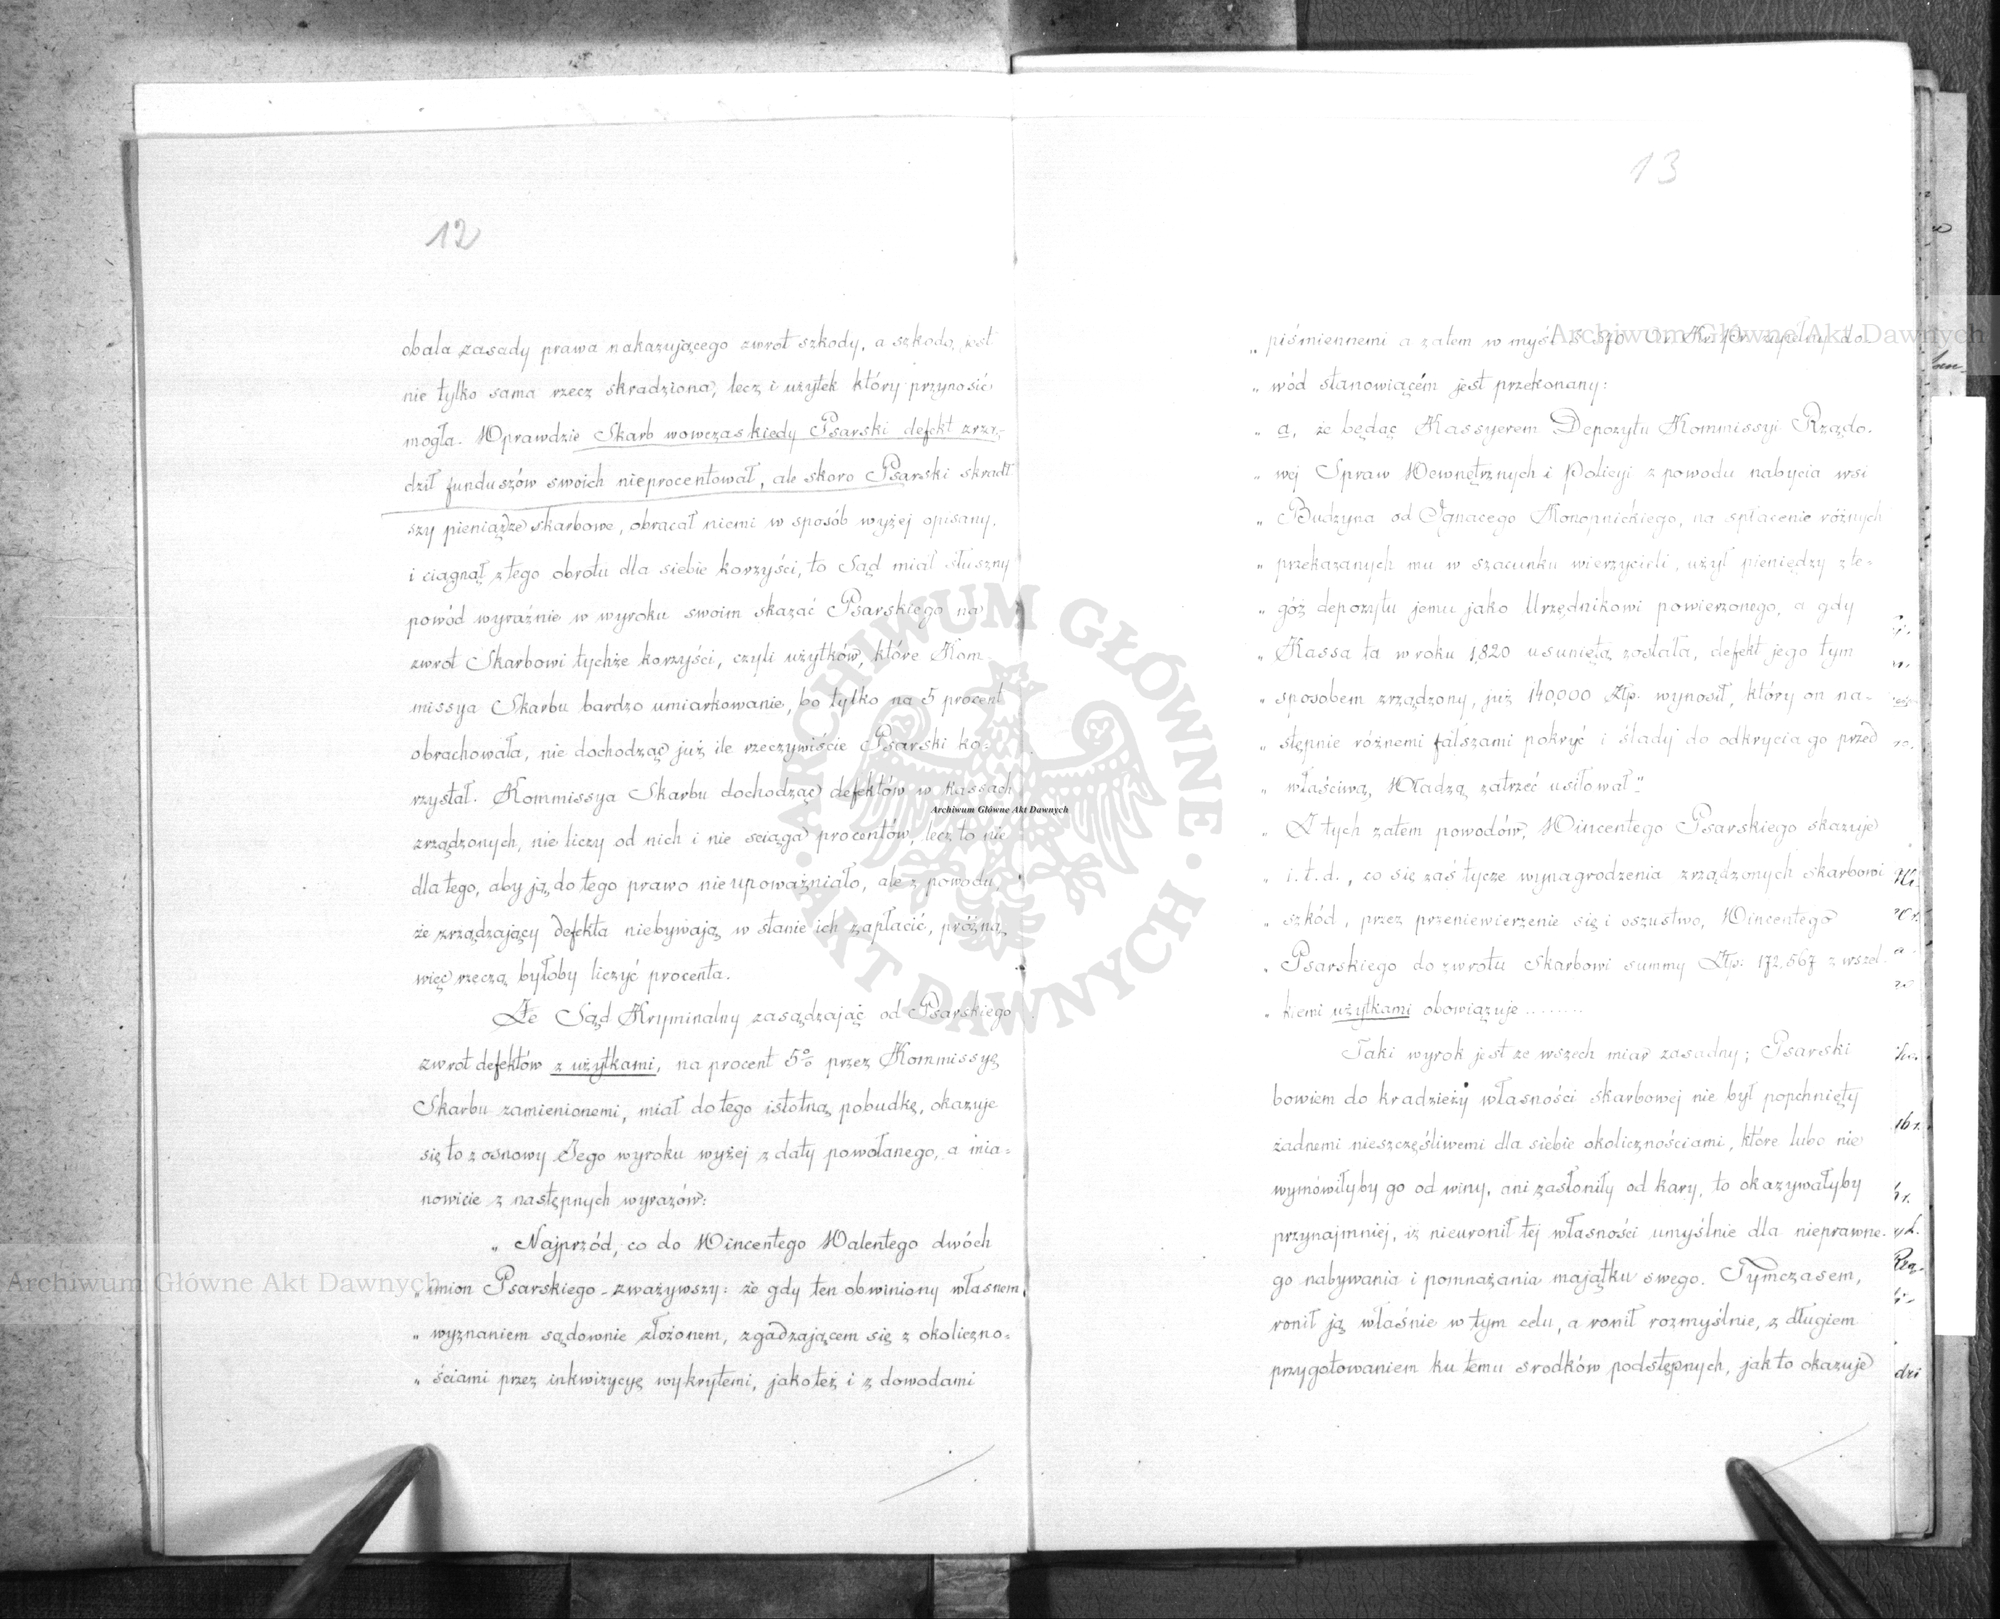 12
obala zasady prawa nakazującego zwrot szkody, a szkodą jest
nie tylko sama rzecz skradziona, lecz i użytek który przynosić
mogła. Wprawdzie Skarb wowczas kiedy Psarski defekt zrzą-
dził funduszów swoich nieprocentował, ale skoro Psarski skradł
szy pieniądze skarbowe, obracał niemi w sposób wyżej opisany,
i ciągnął z tego obrotu dla siebie korzyści, to Sąd miał słuszny
powód wyraźnie w wyroku swoim skazać Psarskiego na
zwrot Skarbowi tychże korzyści, czyli użytków, które Kom-
missya Skarbu bardzo umiarkowanie, bo tylko na 5 procent
obrachowała, nie dochodząc już ile rzeczywiście Psarski ko-
rzystał. Kommissya Skarbu dochodząc defektów w kassach
zrządzonych, nie liczy od nich i nie sciąga procentów, lecz to nie
dla tego, aby ją do tego prawo nieupoważniało, ale z powodu,
że zrządzający defekta niebywają w stanie ich zapłacić, próżną
więc rzeczą byłoby liczyć procenta.
Że Sąd Kryminalny zasądzając od Psarskiego
zwrot defektów z użytkami, na procent 5% przez Kommissyę
Skarbu zamienionemi, miał do tego istotną pobudkę, okazuje
się to z osnowy Jego wyroku wyżej z daty powołanego, a mia-
nowicie z następnych wyrazów:
„ Najprzód, co do Wincentego Walentego dwóch
„ imion Psarskiego - zważywszy: że gdy ten obwiniony własnem
„ wyznaniem sądownie złożonem, zgadzającem się z okoliczno-
„ ściami przez inkwizycyę wykrytemi, jakoteż i z dowodami
13
„ piśmiennemi a zatem w myśl § 370 Or. Kr. zupełny do-
„ wód stanowiącém jest przekonany:
„ a, że będąc Kassyerem Depozytu Kommissyi Rządo-
„ wej Spraw Wewnętrznych i Policyi z powodu nabycia wsi
„ Budzyna od Ignacego Konopnickiego, na spłacenie różnych
„ przekazanych mu w szacunku wierzycieli, użył pieniędzy z te-
„ góż depozytu jemu jako Urzędnikowi powierzonego, a gdy
„ Kassa ta w roku 1820 usuniętą została, defekt jego tym
„ sposobem zrządzony, już 140,000 Złp. wynosił, który on na-
„ stępnie różnemi fałszami pokryć i ślady do odkrycia go przed
„ właściwą Władzą zatrzeć usiłował"
„ Z tych zatem powodów, Wincentego Psarskiego skazuje
„ i. t. d., co się zaś tycze wynagrodzenia zrządzonych skarbowi
„ szkód, przez przeniewierzenie się i oszustwo, Wincentego
„ Psarskiego do zwrotu Skarbowi summy Złp: 172,567 z wszel-
„ kiemi użytkami obowiązuje ........
Taki wyrok jest ze wszech miar zasadny; Psarski
bowiem do kradzieży własności skarbowej nie był popchnięty
żadnemi nieszczęśliwemi dla siebie okolicznościami, które lubo nie
wymówiłyby go od winy, ani zasłoniły od kary, to okazywałyby
przynajmniéj, iż nieuronił téj własności umyślnie dla nieprawne-
go nabywania i pomnażania majątku swego. Tymczasem,
ronił ją właśnie w tym celu, a ronił rozmyślnie, z długiem
przygotowaniem ku temu srodków podstępnych, jak to okazuje
Archiwum Główne Akt Dawnych
Archiwum Główne Akt Dawnych
Archiwum Główne Akt Dawnych
ARCHIWUM GŁÓWNE · AKT DAWNYCH ·